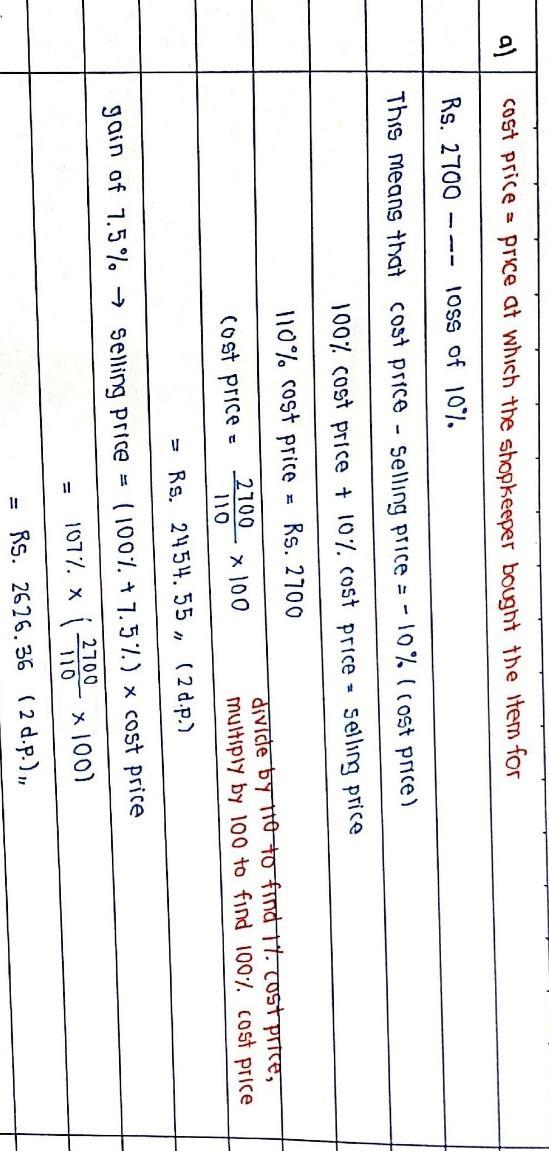 a) cost price = price at which the shopkeeper bought the item for
Rs. 2700 --- loss of 10%
This means that cost price - selling price = - 10% (cost price)
100% cost price + 10% cost price = selling price
110% cost price = Rs. 2700
divide by 110 to find 1% cost price,
cost price = 2700/110 x 100
multiply by 100 to find 100% cost price
= Rs. 2454.55 ,, (2 d.p.)
gain of 7.5% → selling price = (100% + 7.5%) x cost price
= 107% x (2700/110 x 100)
= Rs. 2626.36 (2 d.p.),,